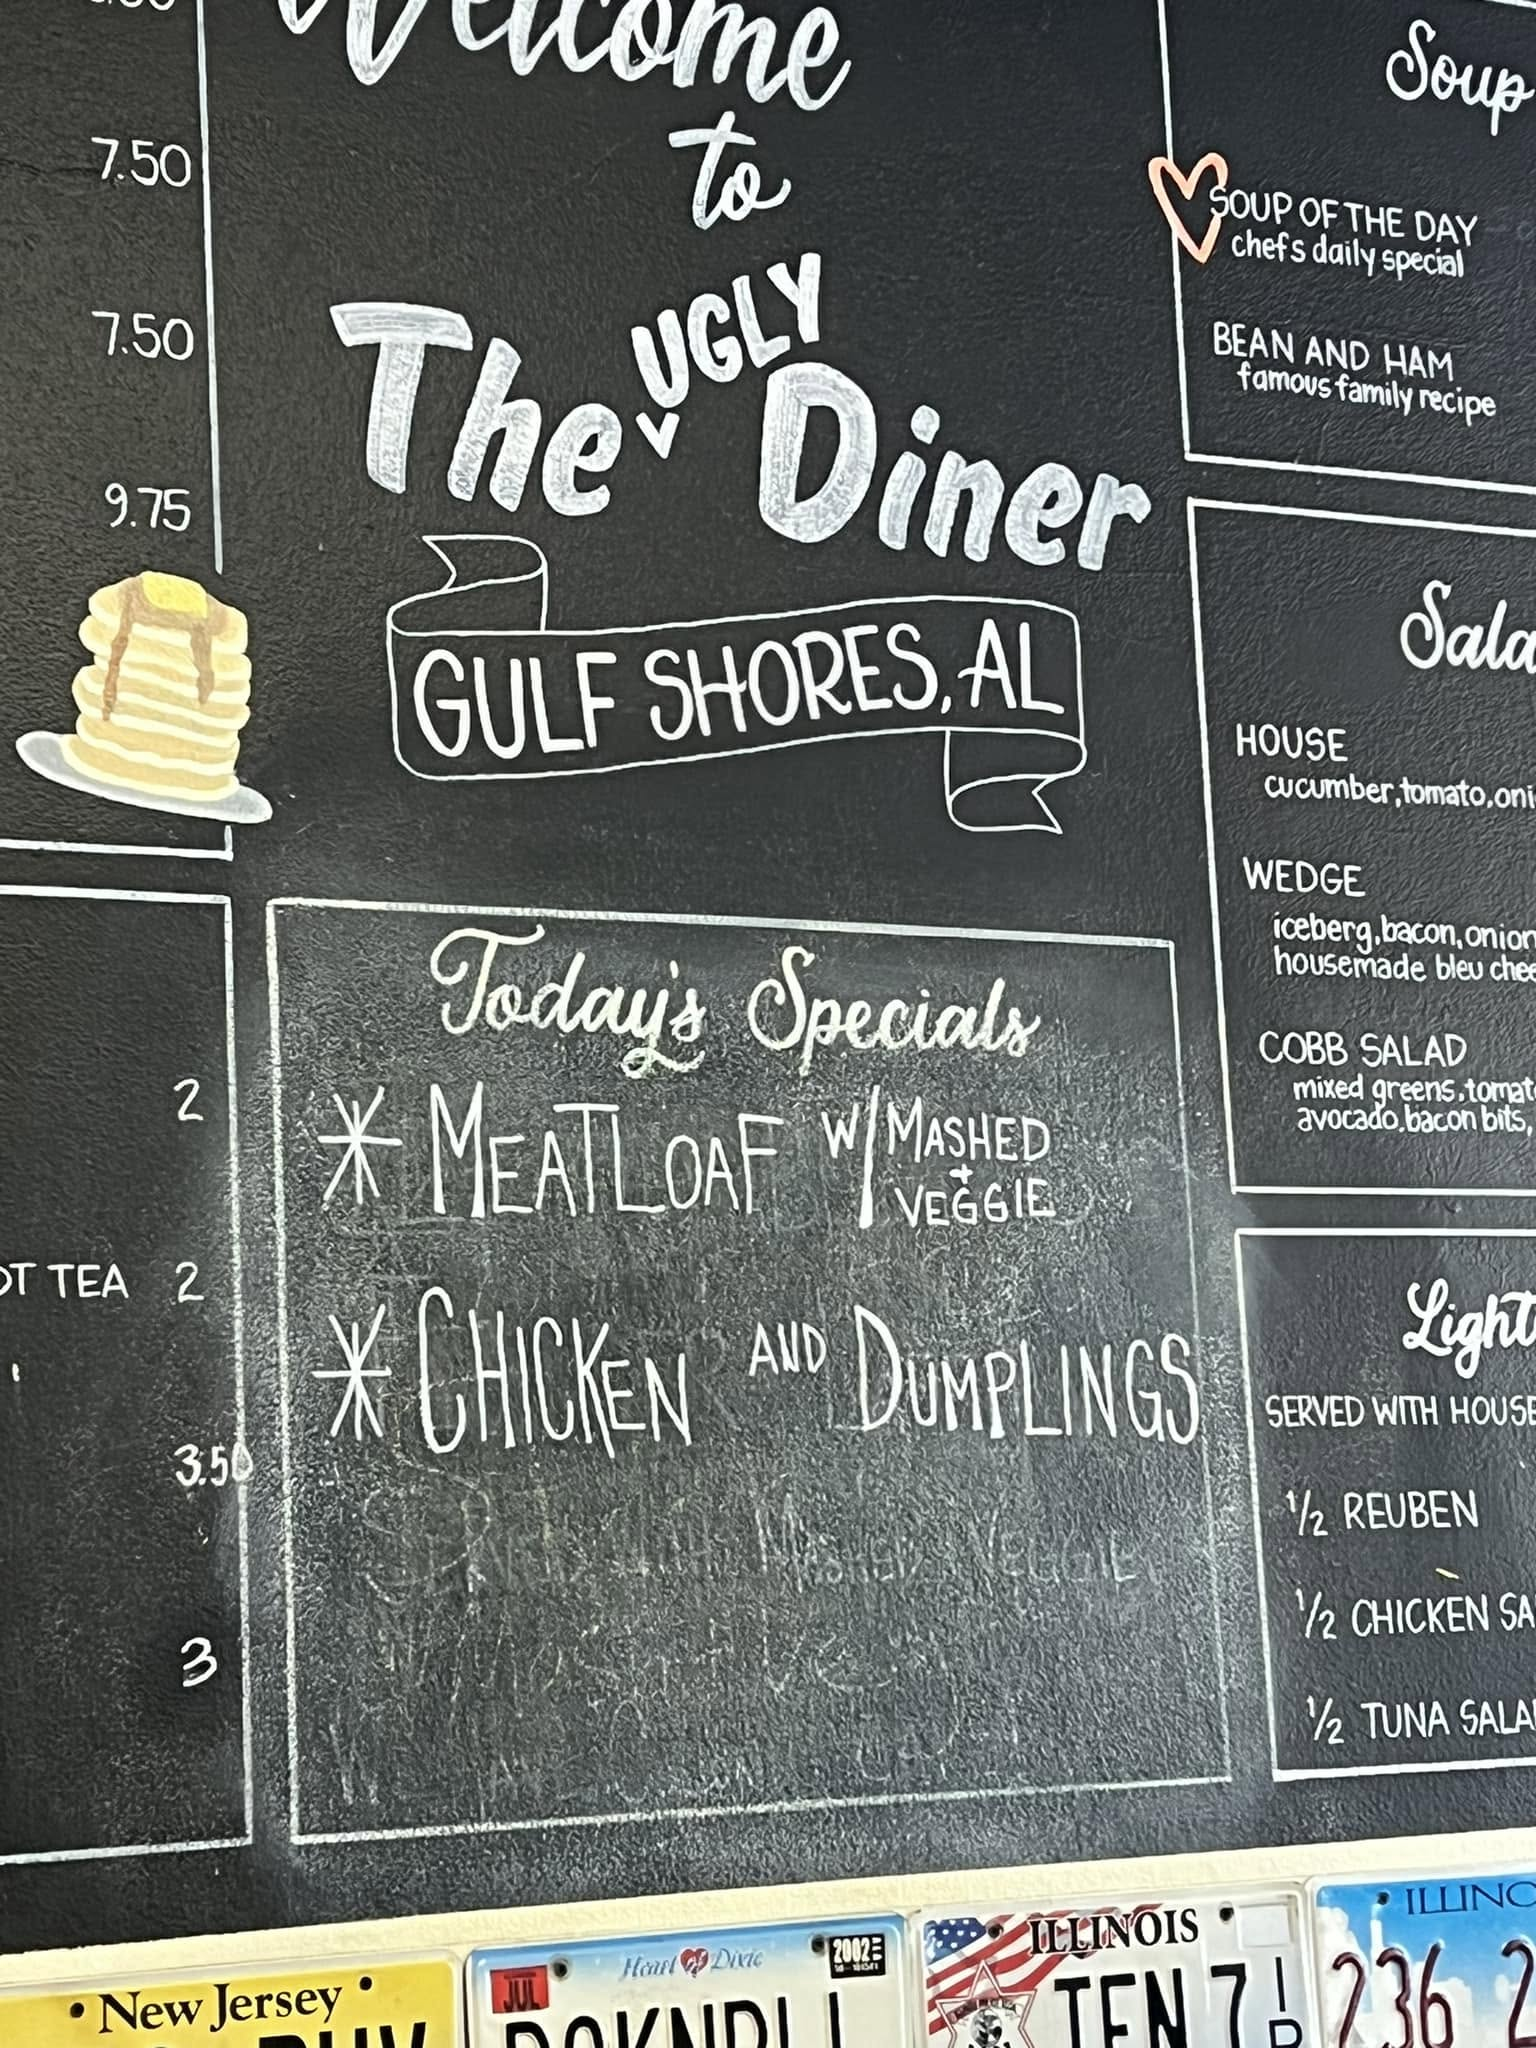 7.50
7.50
9.75
2
OT TEA 2
3.50
3
Welcome
to
The UGLY Diner
GULF SHORES, AL
Today's Specials
* MEATLOAF W/ MASHED
+
VEGGIE
* CHICKEN AND DUMPLINGS
Soup
SOUP OF THE DAY
chefs daily special
BEAN AND HAM
famous family recipe
Sala
HOUSE
cucumber, tomato, oni
WEDGE
iceberg, bacon, onion
housemade bleu chee
COBB SALAD
mixed greens, tomat
avocado, bacon bits,
Light
SERVED WITH HOUSE
1/2 REUBEN
1/2 CHICKEN SA
1/2 TUNA SALA
New Jersey
JUL
Heart of Dixie
2002
ILLINOIS
TEN 7
ILLINO
236 2